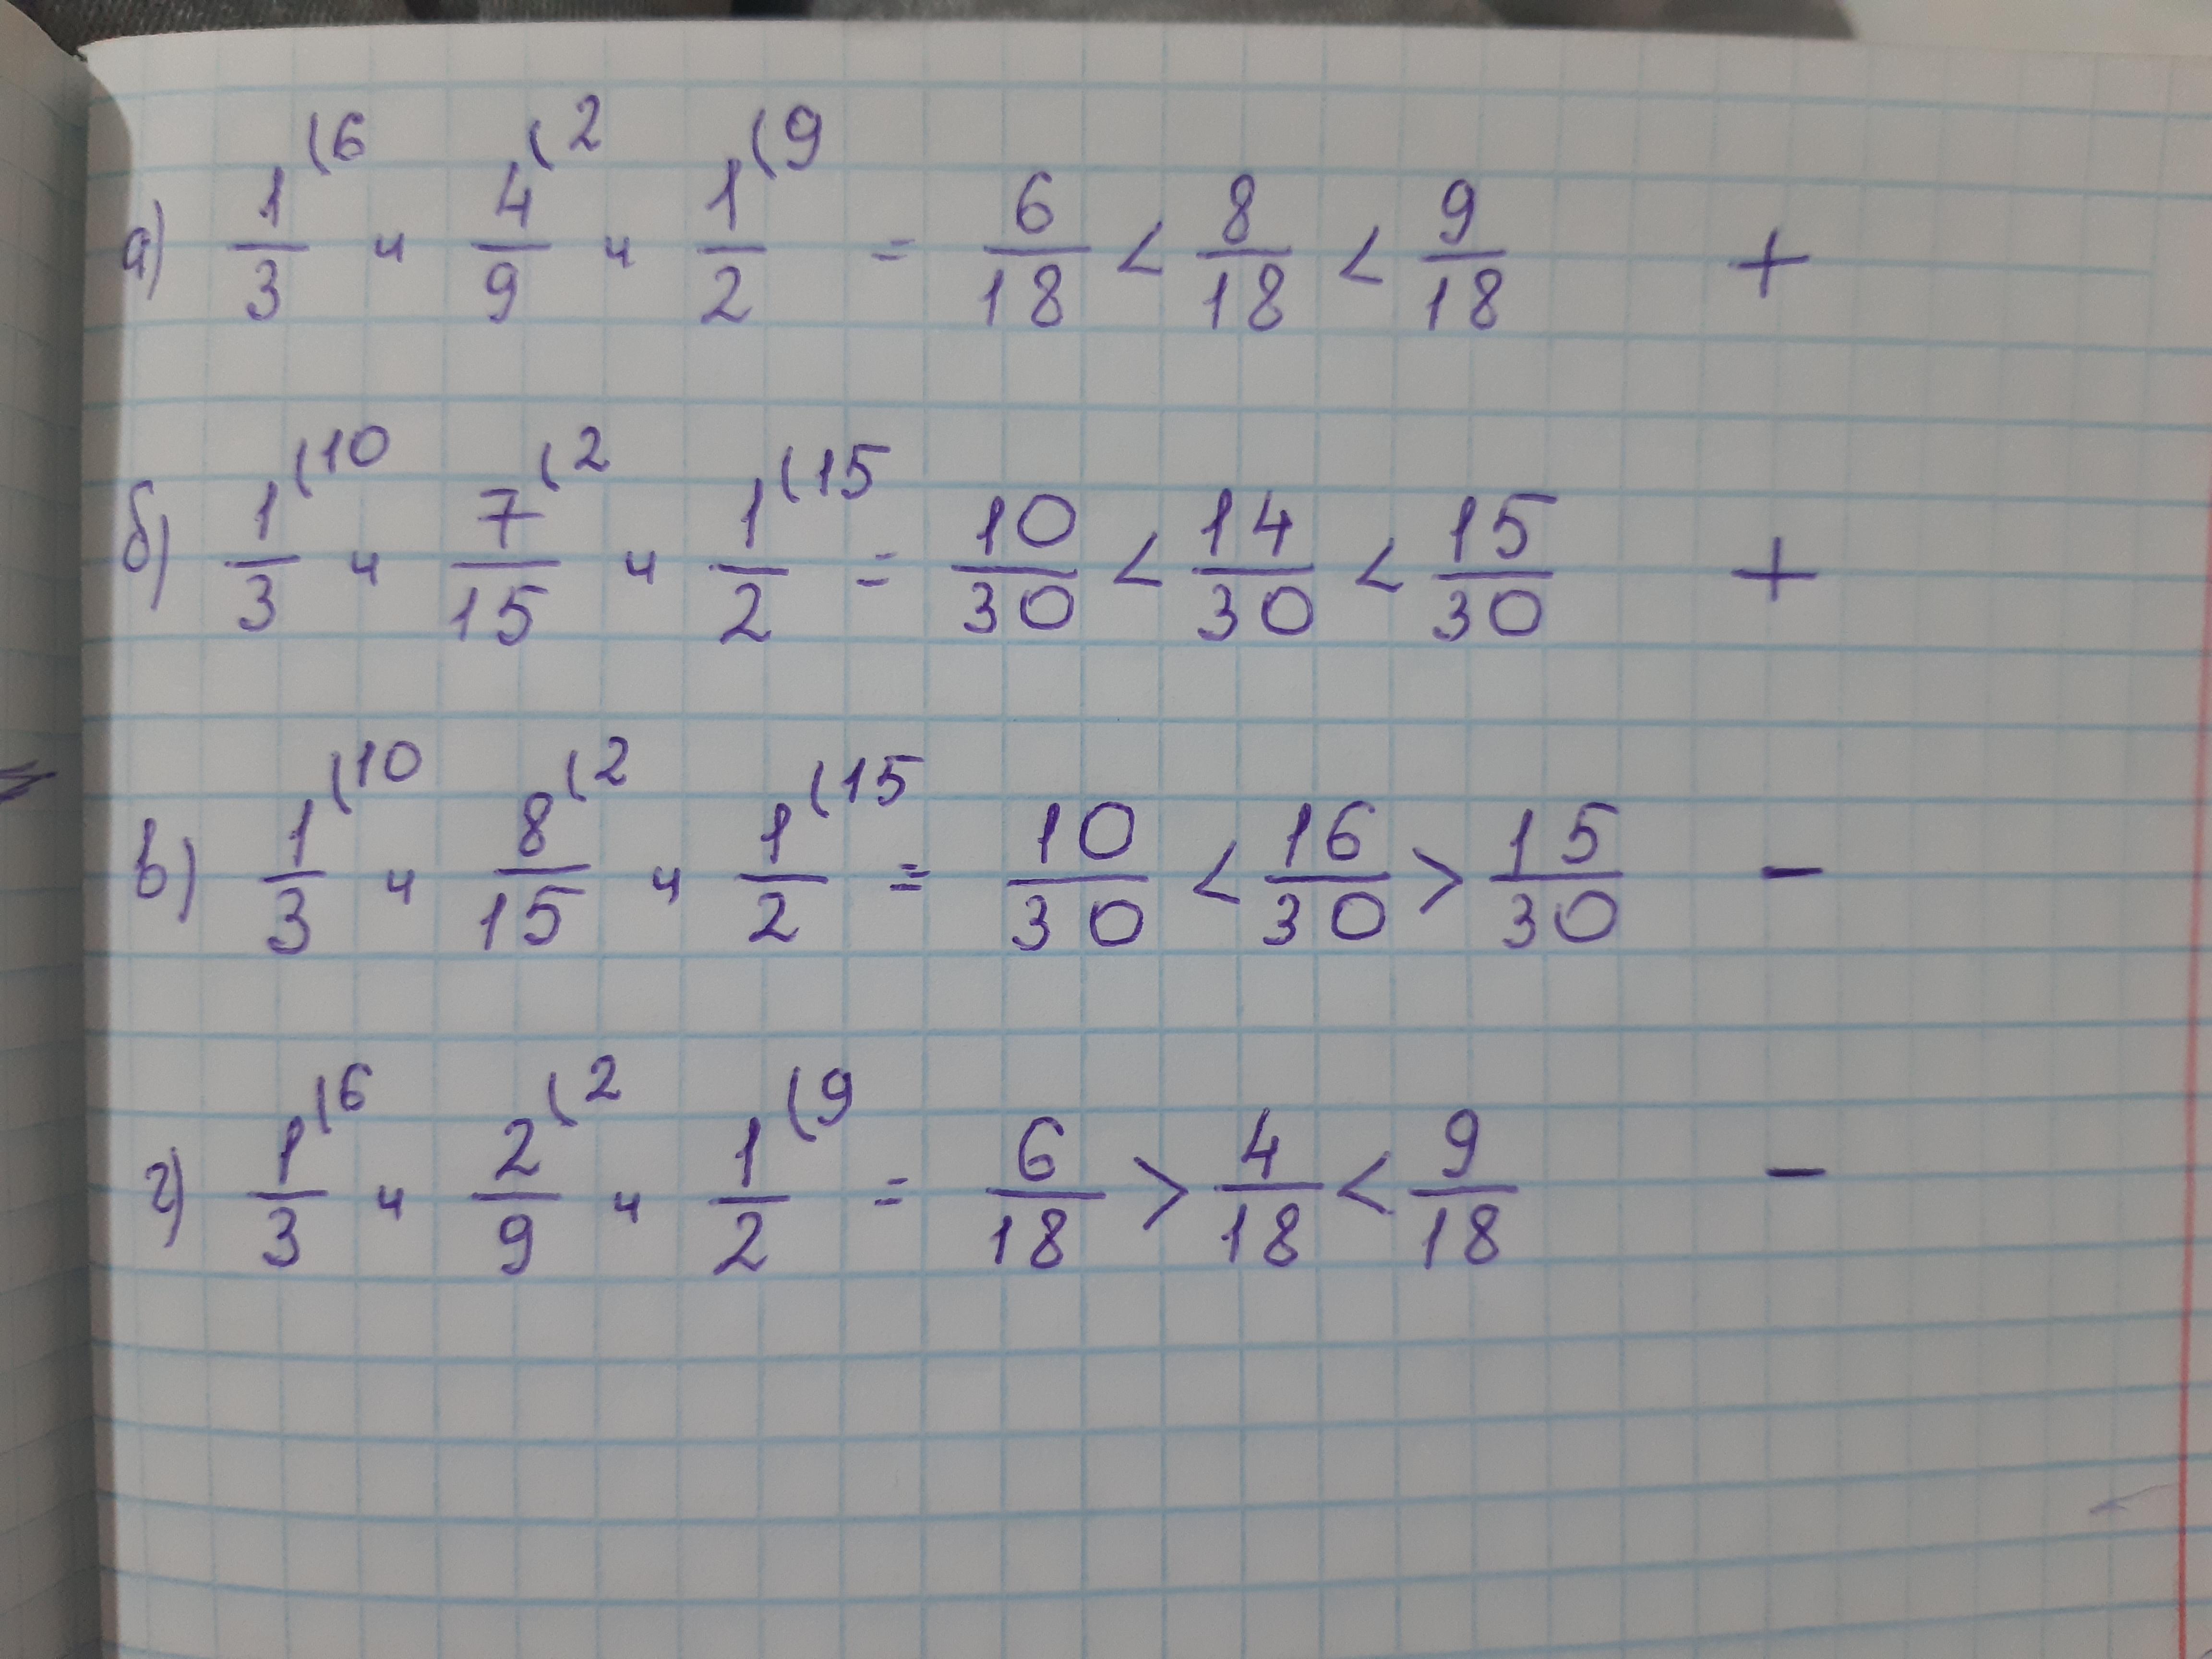 а) 1/3 (6 и 4/9 (2 и 1/2 (9 = 6/18 < 8/18 < 9/18 +
б) 1/3 (10 и 7/15 (2 и 1/2 (15 = 10/30 < 14/30 < 15/30 +
в) 1/3 (10 и 8/15 (2 и 1/2 (15 = 10/30 < 16/30 > 15/30 −
г) 1/3 (6 и 2/9 (2 и 1/2 (9 = 6/18 > 4/18 < 9/18 −